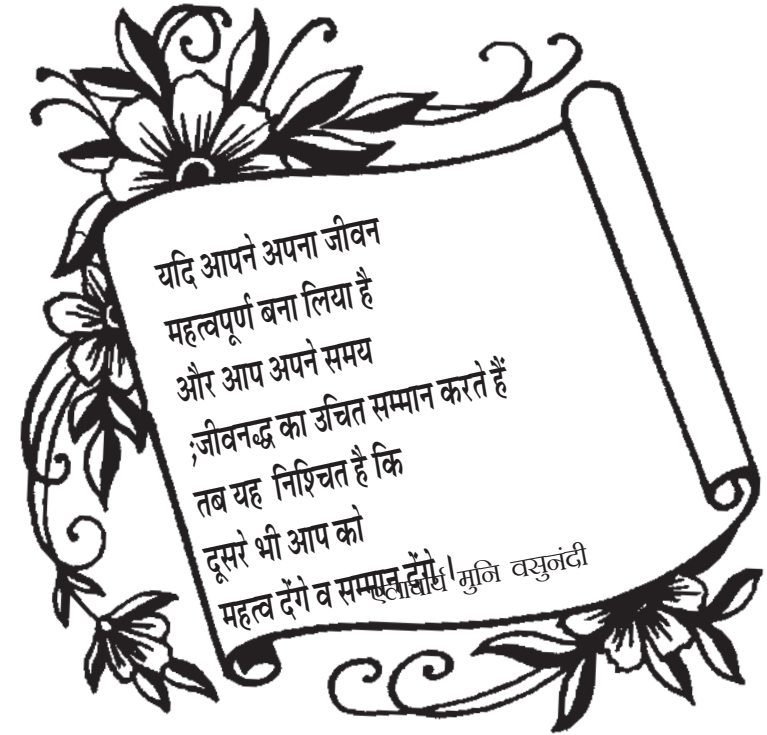 यदि आपने अपना जीवन
महत्वपूर्ण बना लिया है
और आप अपने समय
;जीवनद्ध का उचित सम्मान करते हैं
तब यह निश्चित है कि
दूसरे भी आप को
महत्व देंगे व सम्मान देंगे।
एलाचार्य मुनि वसुनंदी